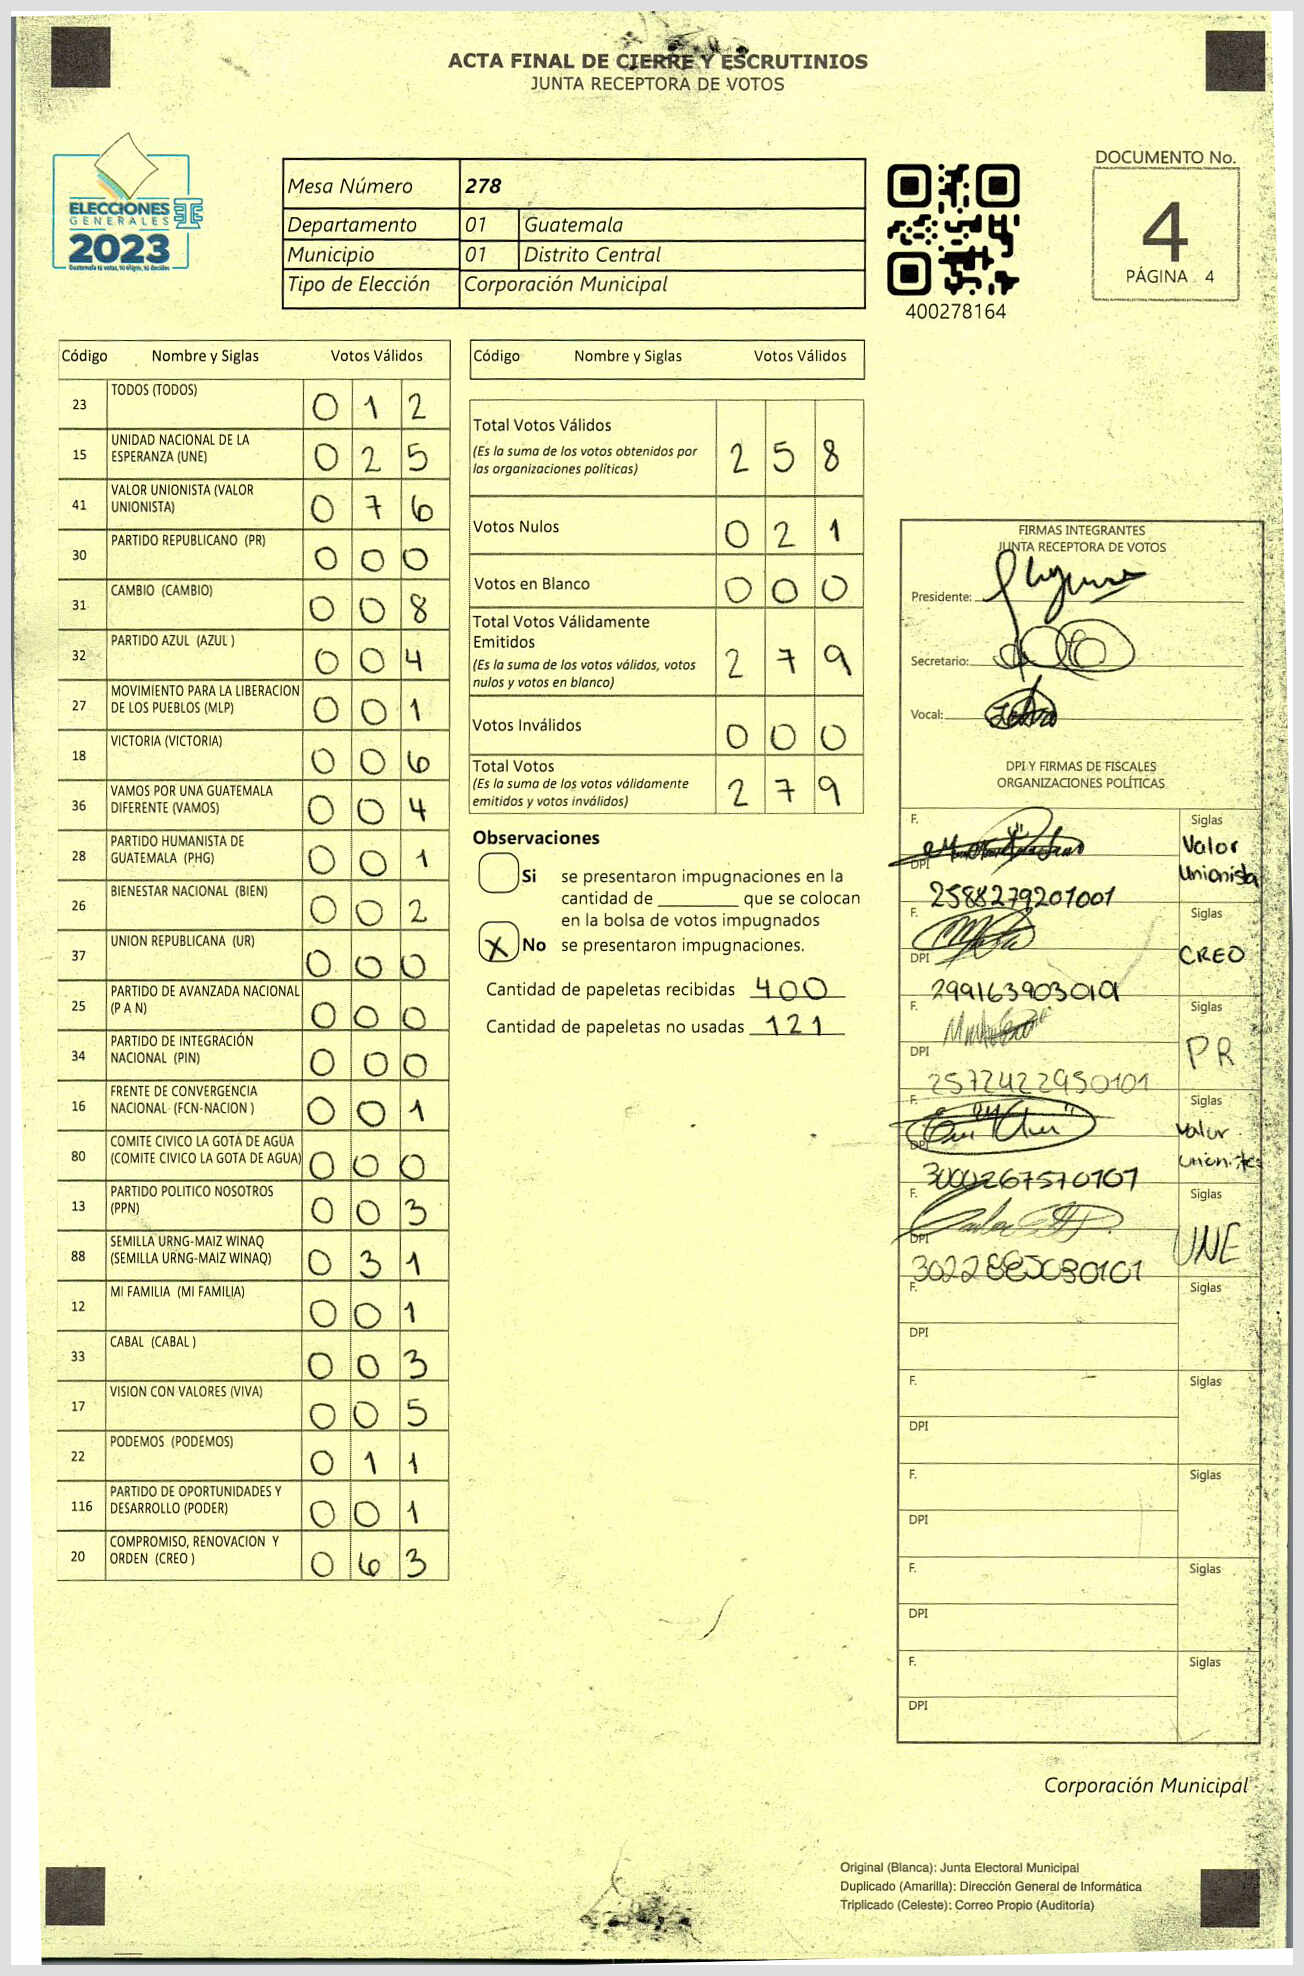 ACTA FINAL DE CIERRE Y ESCRUTINIOS
JUNTA RECEPTORA DE VOTOS
ELECCIONES
GENERALES
2023
Mesa Número 278
Departamento 01 Guatemala
Municipio 01 Distrito Central
Tipo de Elección Corporación Municipal
400278164
DOCUMENTO No.
4
PÁGINA 4
Código Nombre y Siglas Votos Válidos
23 TODOS (TODOS) 0 1 2
15 UNIDAD NACIONAL DE LA
ESPERANZA (UNE) 0 2 5
41 VALOR UNIONISTA (VALOR
UNIONISTA) 0 7 6
30 PARTIDO REPUBLICANO (PR) 0 0 0
31 CAMBIO (CAMBIO) 0 0 8
32 PARTIDO AZUL (AZUL ) 0 0 4
27 MOVIMIENTO PARA LA LIBERACION
DE LOS PUEBLOS (MLP) 0 0 1
18 VICTORIA (VICTORIA) 0 0 6
36 VAMOS POR UNA GUATEMALA
DIFERENTE (VAMOS) 0 0 4
28 PARTIDO HUMANISTA DE
GUATEMALA (PHG) 0 0 1
26 BIENESTAR NACIONAL (BIEN) 0 0 2
37 UNION REPUBLICANA (UR) 0 0 0
25 PARTIDO DE AVANZADA NACIONAL
(P A N) 0 0 0
34 PARTIDO DE INTEGRACIÓN
NACIONAL (PIN) 0 0 0
16 FRENTE DE CONVERGENCIA
NACIONAL (FCN-NACION ) 0 0 1
80 COMITE CIVICO LA GOTA DE AGUA
(COMITE CIVICO LA GOTA DE AGUA) 0 0 0
13 PARTIDO POLITICO NOSOTROS
(PPN) 0 0 3
88 SEMILLA URNG-MAIZ WINAQ
(SEMILLA URNG-MAIZ WINAQ) 0 3 1
12 MI FAMILIA (MI FAMILIA) 0 0 1
33 CABAL (CABAL ) 0 0 3
17 VISION CON VALORES (VIVA) 0 0 5
22 PODEMOS (PODEMOS) 0 1 1
116 PARTIDO DE OPORTUNIDADES Y
DESARROLLO (PODER) 0 0 1
20 COMPROMISO, RENOVACION Y
ORDEN (CREO ) 0 6 3
Código Nombre y Siglas Votos Válidos
Total Votos Válidos
(Es la suma de los votos obtenidos por
las organizaciones políticas) 2 5 8
Votos Nulos 0 2 1
Votos en Blanco 0 0 0
Total Votos Válidamente
Emitidos
(Es la suma de los votos válidos, votos
nulos y votos en blanco) 2 7 9
Votos Inválidos 0 0 0
Total Votos
(Es la suma de los votos válidamente
emitidos y votos inválidos) 2 7 9
Observaciones
Si se presentaron impugnaciones en la
cantidad de ________ que se colocan
en la bolsa de votos impugnados
X No se presentaron impugnaciones.
Cantidad de papeletas recibidas 400
Cantidad de papeletas no usadas 121
FIRMAS INTEGRANTES
JUNTA RECEPTORA DE VOTOS
Presidente:
Secretario:
Vocal:
DPI Y FIRMAS DE FISCALES
ORGANIZACIONES POLÍTICAS
F. Siglas
Valor
Unionista
DPI
2588279201001
F. Siglas
CREO
DPI
F. Siglas
PR
DPI
2572422950101
F. Siglas
Valor
Unionista
DPI
3000267570107
F. Siglas
UNE
DPI
F. Siglas
DPI
F. Siglas
DPI
F. Siglas
DPI
F. Siglas
DPI
F. Siglas
DPI
Corporación Municipal
Original (Blanca): Junta Electoral Municipal
Duplicado (Amarilla): Dirección General de Informática
Triplicado (Celeste): Correo Propio (Auditoría)